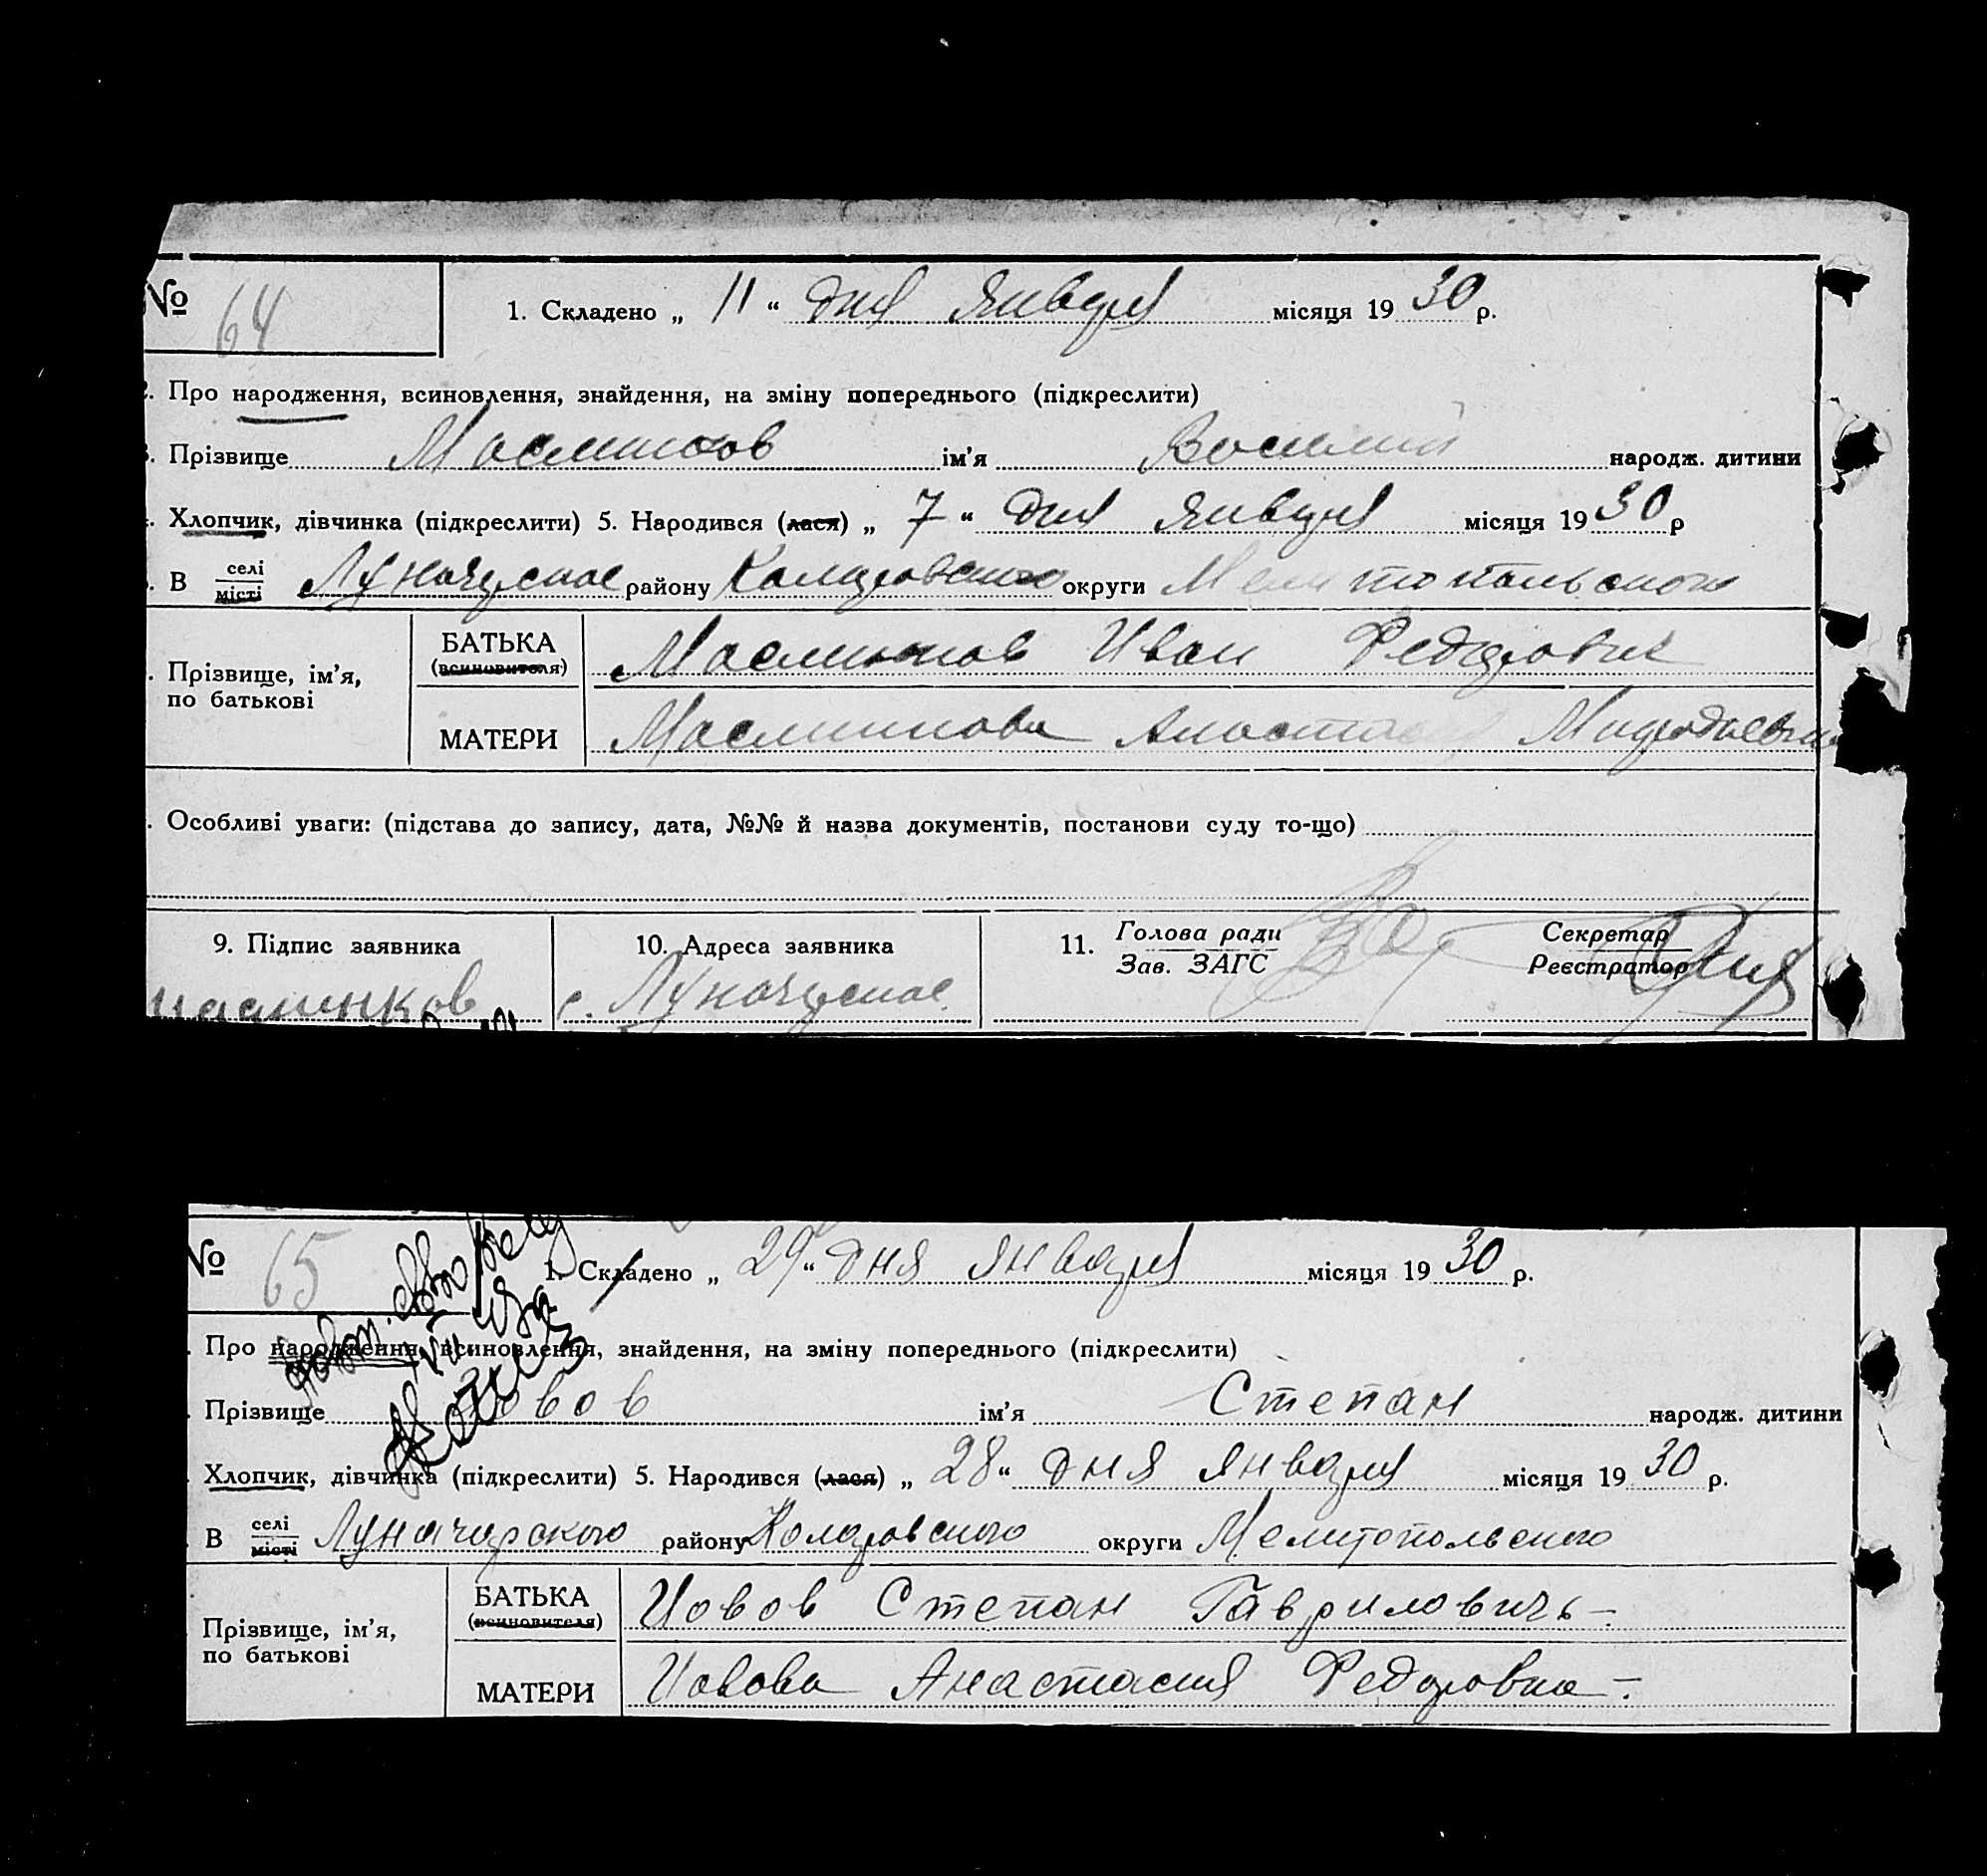 № 64
1. Складено „ 11 “ дня Января місяця 1930 р.
. Про народження, всиновлення, знайдення, на зміну попереднього (підкреслити)
. Прізвище Маслинков ім'я Василий народж. дитини
. Хлопчик, дівчинка (підкреслити) 5. Народився (лася) „ 7 “ дня Января місяця 1930 р
. В селі місті Луначарское району Коларовского округи Мелитопольского
. Прізвище, ім'я, по батькові
БАТЬКА (всиновителя) Маслинков Иван Федорович
МАТЕРИ Маслинкова
. Особливі уваги: (підстава до запису, дата, №№ й назва документів, постанови суду то-що)
9. Підпис заявника 10. Адреса заявника 11. Голова ради Зав. ЗАГС Секретар Реєстратор
маслинков с. Луначарское
№ 65
1. Складено „ 29 “ дня января місяця 1930 р.
. Про народження, всиновлення, знайдення, на зміну попереднього (підкреслити)
. Прізвище ім'я Степан народж. дитини
. Хлопчик, дівчинка (підкреслити) 5. Народився (лася) „ 28 “ дня января місяця 1930 р.
. В селі місті Луначарского району Коларовского округи Мелитопольского
Прізвище, ім'я, по батькові
БАТЬКА (всиновителя) Иовов Степан Гавриловичь —
МАТЕРИ Иовова Анастасия Федоровна —.